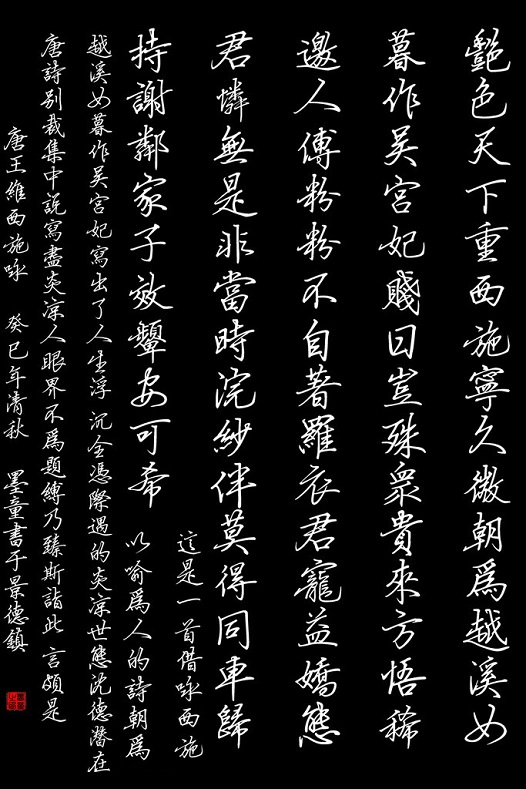 艷色天下重西施寧久微朝爲越溪女
暮作吴宫妃賤日豈殊衆貴來方悟稀
邀人傅粉粉不自著羅衣君寵益嬌態
君憐無是非當時浣紗伴莫得同車歸
持謝鄰家子效顰安可希
這是一首借咏西施
以喻爲人的詩朝爲
越溪女暮作吴宫妃寫出了人生浮沉全憑際遇的炎涼世態沈德潛在
唐詩别裁集中説寫盡炎涼人眼界不爲題縛乃臻斯詣此言頗是
唐王維西施咏 癸巳年清秋 墨童書于景德鎮